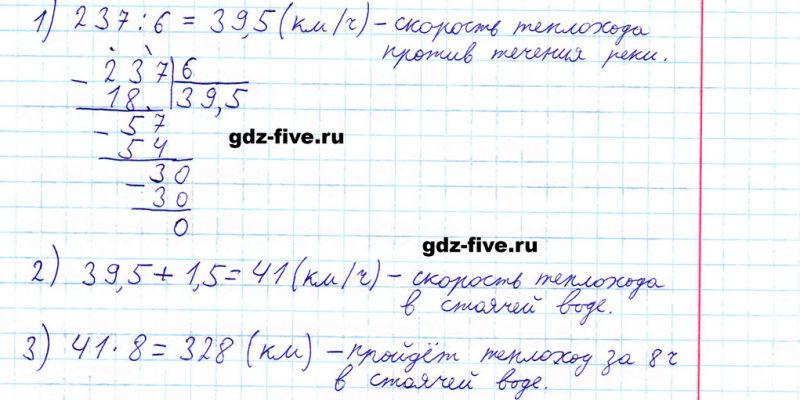 1) 237:6 = 39,5 (км/ч) – скорость теплохода
против течения реки.
- 237 6
18 39,5
- 57
54
- 30
30
0
gdz-five.ru
gdz-five.ru
2) 39,5 + 1,5 = 41 (км/ч) – скорость теплохода
в стоячей воде.
3) 41 · 8 = 328 (км) – пройдёт теплоход за 8 ч
в стоячей воде.